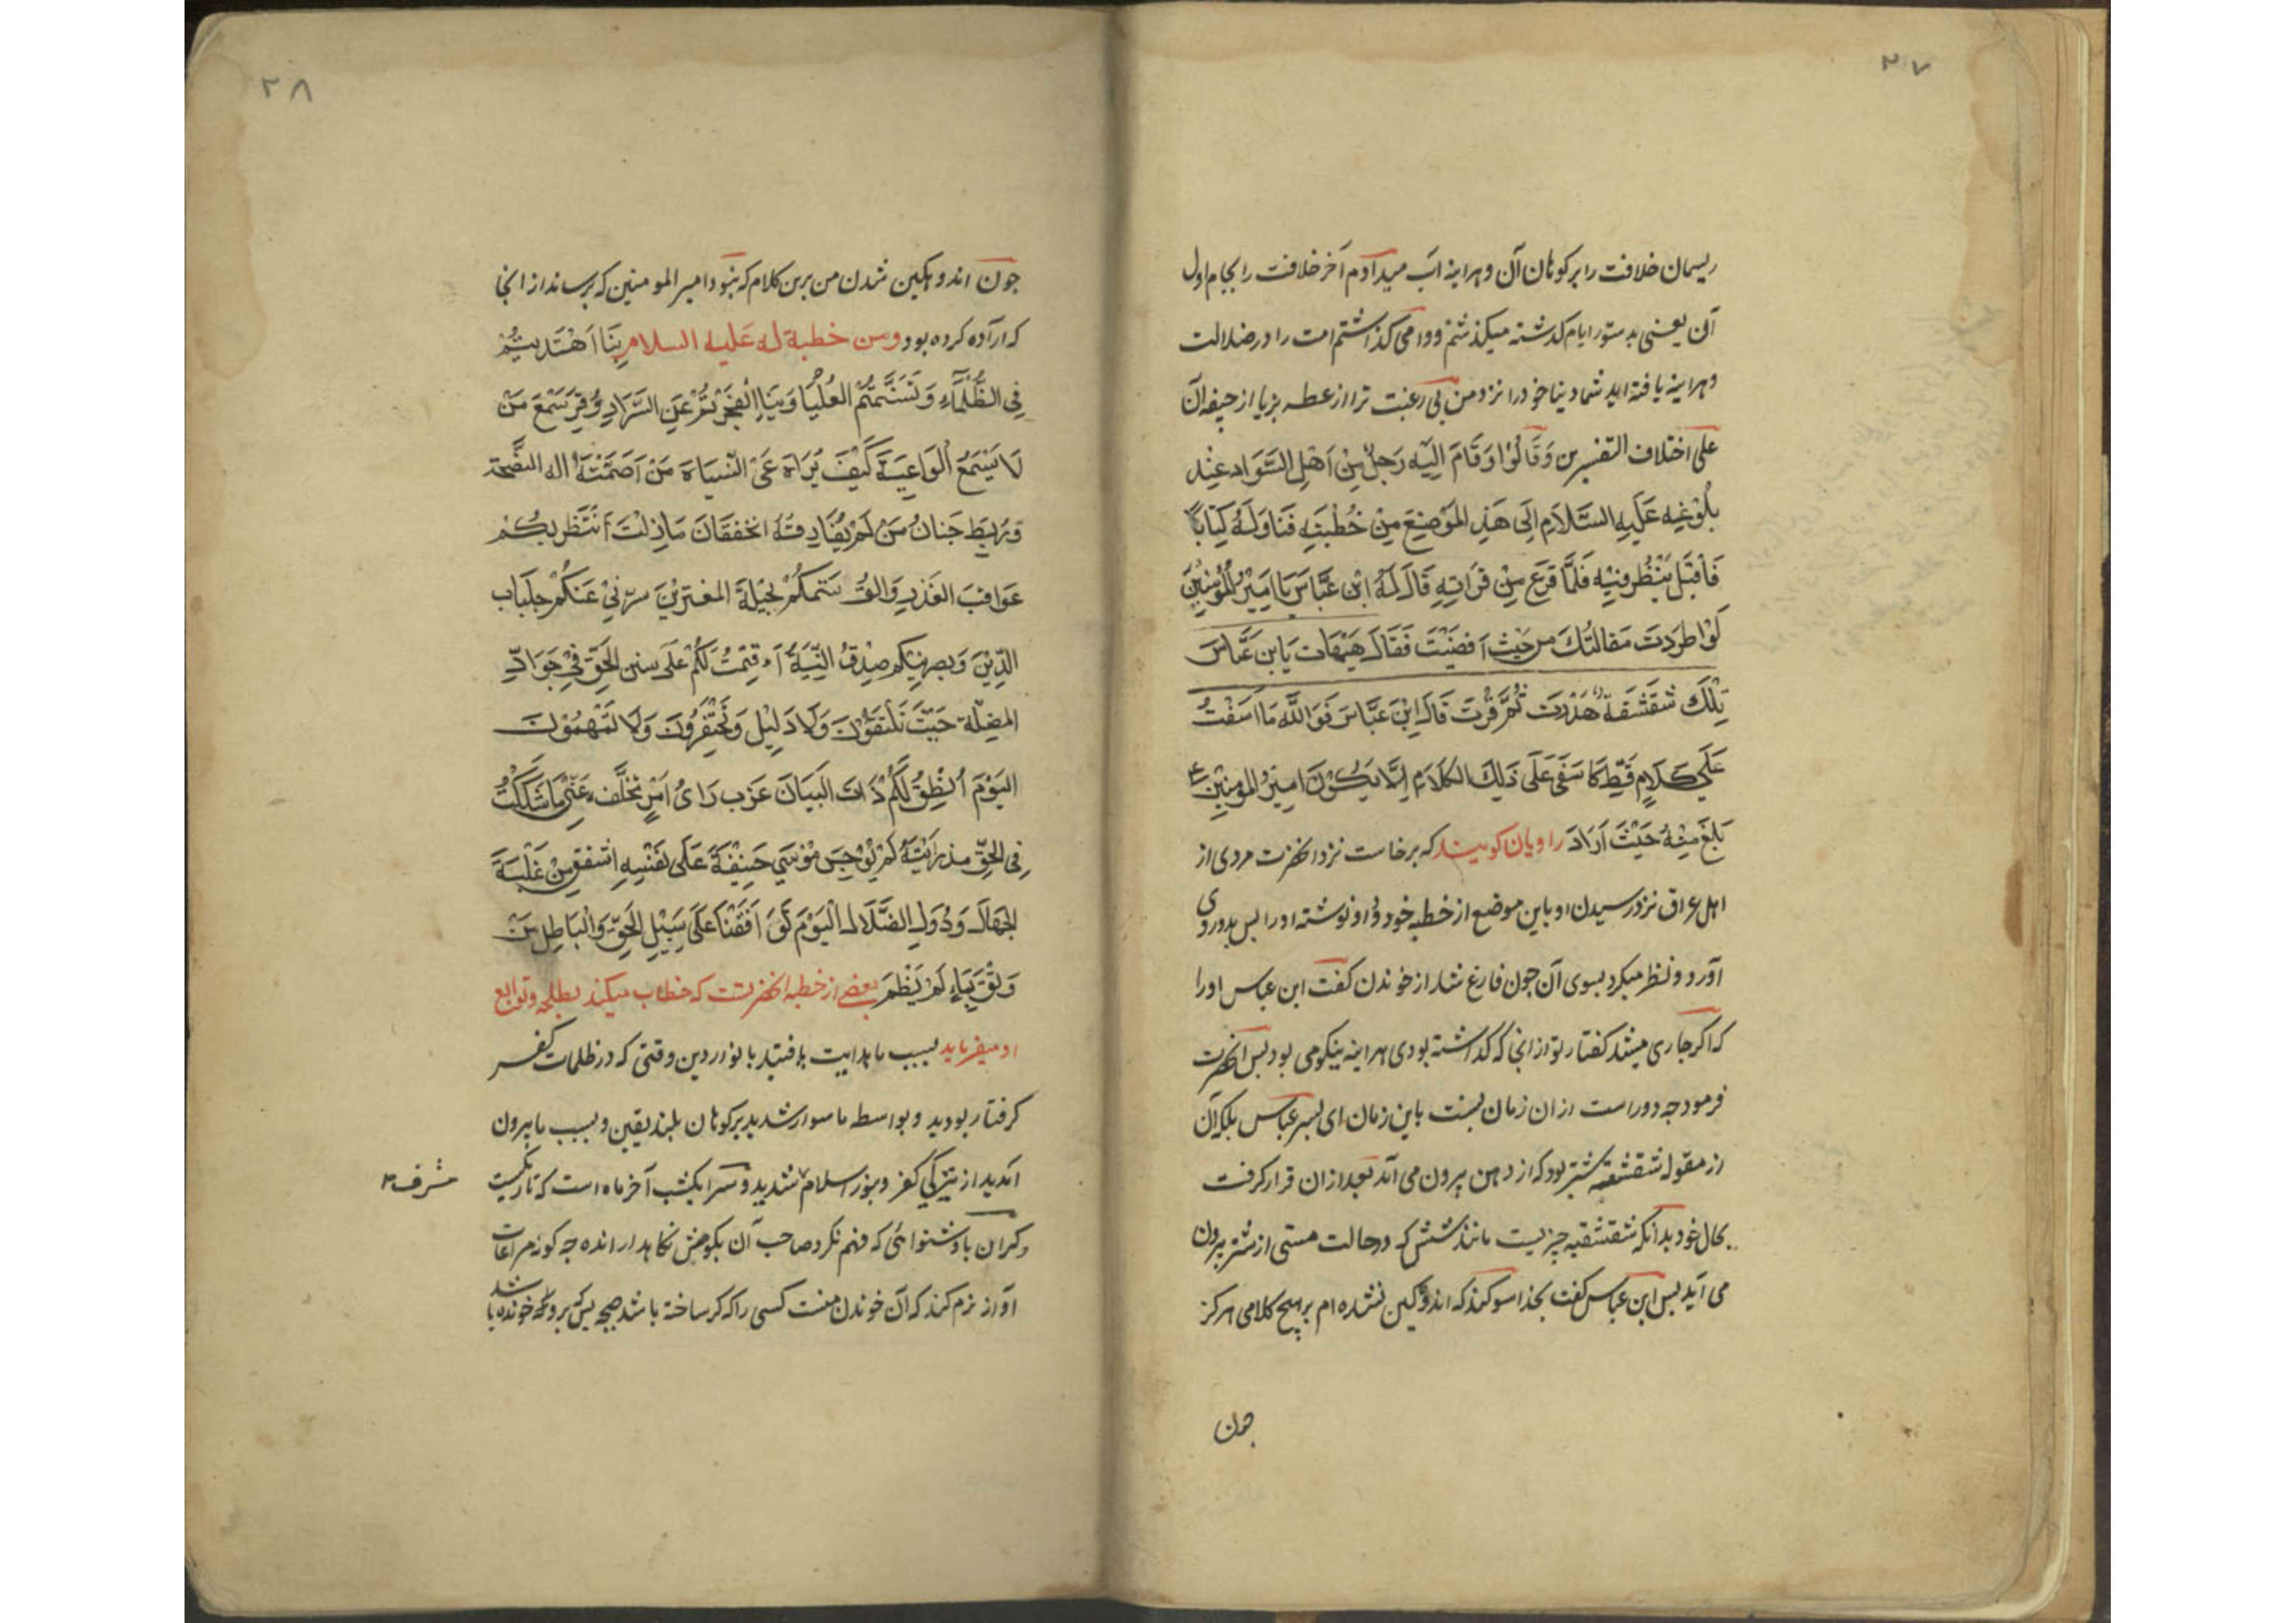 ۲۷
ریسمان خلافت را بر کوهان آن و هراینه اب میدادم آخر خلافت را بجام اول
آن یعنی بدستور ایام کذشته میکذشتم و وا می کذاشتم امت را در ضلالت
و هراینه یافته اید شما دنیا خود را نزد من بی رغبت تر از عطسه بز یا از جیفه آن
علی اختلاف التفسیرین وَقَالُوا وَقَامَ اِلَیْهِ رَجُلٌ مِنْ اَهْلِ السَّوَادِ عِنْدِ
بُلُوْغِهِ عَلَیْهِ السَّلَامِ اِلَی هَذِ المَوْضِعِ مِنْ خُطْبَتِهِ فَنَاوَلَهُ کِتَاباً
فَاَقْبَلَ یَنْظُرُ فِیْهِ فَلَمَّا فَرَغَ مِنْ قَرَاتِهِ قَالَ لَهُ ابْنِ عَبَّاسَ یَا امِیْرُ المُؤمِنِیْنَ
لَوْ اطردَتَ مَقالَتُكَ من حَیْثُ اَفضَیْتَ فَقَالَ هَیْهَات یَابن عَبَّاسَ
تِلْكَ شَقْشَقَة هَدَرَت ثُمَّ قَرَّتَ قَالَ اِبْنَ عَبَّاسَ فَوَ اللّٰه مَا اسَفْتُ
عَلَی کَلَامٍ قَطِّ کَاسَفَی عَلَی ذَلِكَ الکَلَامِ اِلَّا یَکُوْنَ امِیْرُ المومِنِیْنَ ع
بَلَغَ مِنْهُ حَیْثَ اَرَادَ راویان کویند که برخاست نزد انحضرت مردی از
اهل عراق نزد رسیدن او باین موضع از خطبه خود و داد نوشته او را بس بدو روی
آورد و نظر میکرد بسوی آن جون فارغ شد از خوندن کفت ابن عباس او را
که اکر جاری میشد کفتار تو از انجا که کذاشته بودی هراینه نیکو می بود بس انحضرت
فرمود جه دور است ازان زمان بسنت باین زمان ای بسر عباس بلکه آن
از مقوله شقشقه شتر بود که از دهن بیرون می آید بعد ازان قرار کرفت
بحال خود بدانکه شقشقه جزیست مانند شش که در حالت مستی از شتر بیرون
می آید بس ابن عباس کفت بخدا سوکند که اندوکین نشده ام بر هیچ کلامی هرکز
جون
۲۸
جون اندوهکین شدن من برین کلام که نبود امیر المومنین که برساند از انجا
که اراده کرده بود ومن خطبة له علیه السلام بِنَا اَهْتَدیتُمْ
فِی الظُّلْمَاءِ وَتَسَنَّمْتُمُ العُلْیَا وَبِنَا اِنْفَجَرْتُمْ عَنِ السَّرَارِ وُقِرَ سَمْعَ مَنْ
لَا یَسْمَعُ الْوَاعِیَةَ کَیْفَ یُرَاهَ عَیْ النَّبْاَةَ مَنْ اَصَمَّتْهُ اله الصَّیْحَة
وَرَبَطَ جَنَانُ مَنْ لَمْ یُفَارِقَهُ الخفقَانَ مَا زِلْتَ اَنْتَظِرَ بِکُمْ
عَوَاقِبَ الغَدْرِ وَ اتوَسَّمکُمْ بحِیْلَةَ المغتریْنَ سترنیْ عَنکُمْ جِلْبَاب
الدِّیْنَ وَبصرنِیْکم صِدْقُ النِّیَةُ اَقمْتُ لَکُمْ عَلَی سنن الحَقِّ فِیْ جَوَادِّ
المضِلَّة حَیْثَ تَلْتَقُوْنَ وَلَا دَلِیْلَ وَتَحْتَفِرُوْنَ وَلَا تَمْهَمُوْنَ
الیَوْمَ اُنْطِقُ لَکُمْ ذَات البَیَانَ عَزَب رَاىُ امْرٍ تخَلَّف عَنِّی مَا شَکَکْتُ
فِی الحَقِّ مذ رَاَیْتَهُ لَمْ یُوْجِسَ مُوْسَی خِیْفَةً عَلَی نَفْسِهِ اشفق مِنْ غَلْبَةَ
الجهَالَ وَدُوَلِ الضَّلَال الْیَوْمَ تَوَ اقَفْنَا عَلَی سَبِیْلِ الحَقِّ وَالْبَاطِلِ مَنْ
وَثِقَ بِمَاءٍ لَمْ یَظْمَ بعضی از خطبه انحضرتست که خطاب میکند بطلحه و توابع
او میفرماید بسبب ما هدایت یافتید بانوار دین وقتی که در ظلمات کفر
کرفتار بودید و بواسطه ما سوار شدید بر کوهان بلند یقین و بسبب ما بیرون
امدید از تیرکی کفر و بنور اسلام شدید و سرا یکشب آخر ماه است که تاریکیست
مشرف
وکران باد شنوائی که فهم نکرد صاحب آن بکوهش نکاهدارانده جه کونه مراعات
آواز نرم کند که آن خوندن منست کسی را که کر ساخته باشد صیحه بس که بر وکه خونده باشد